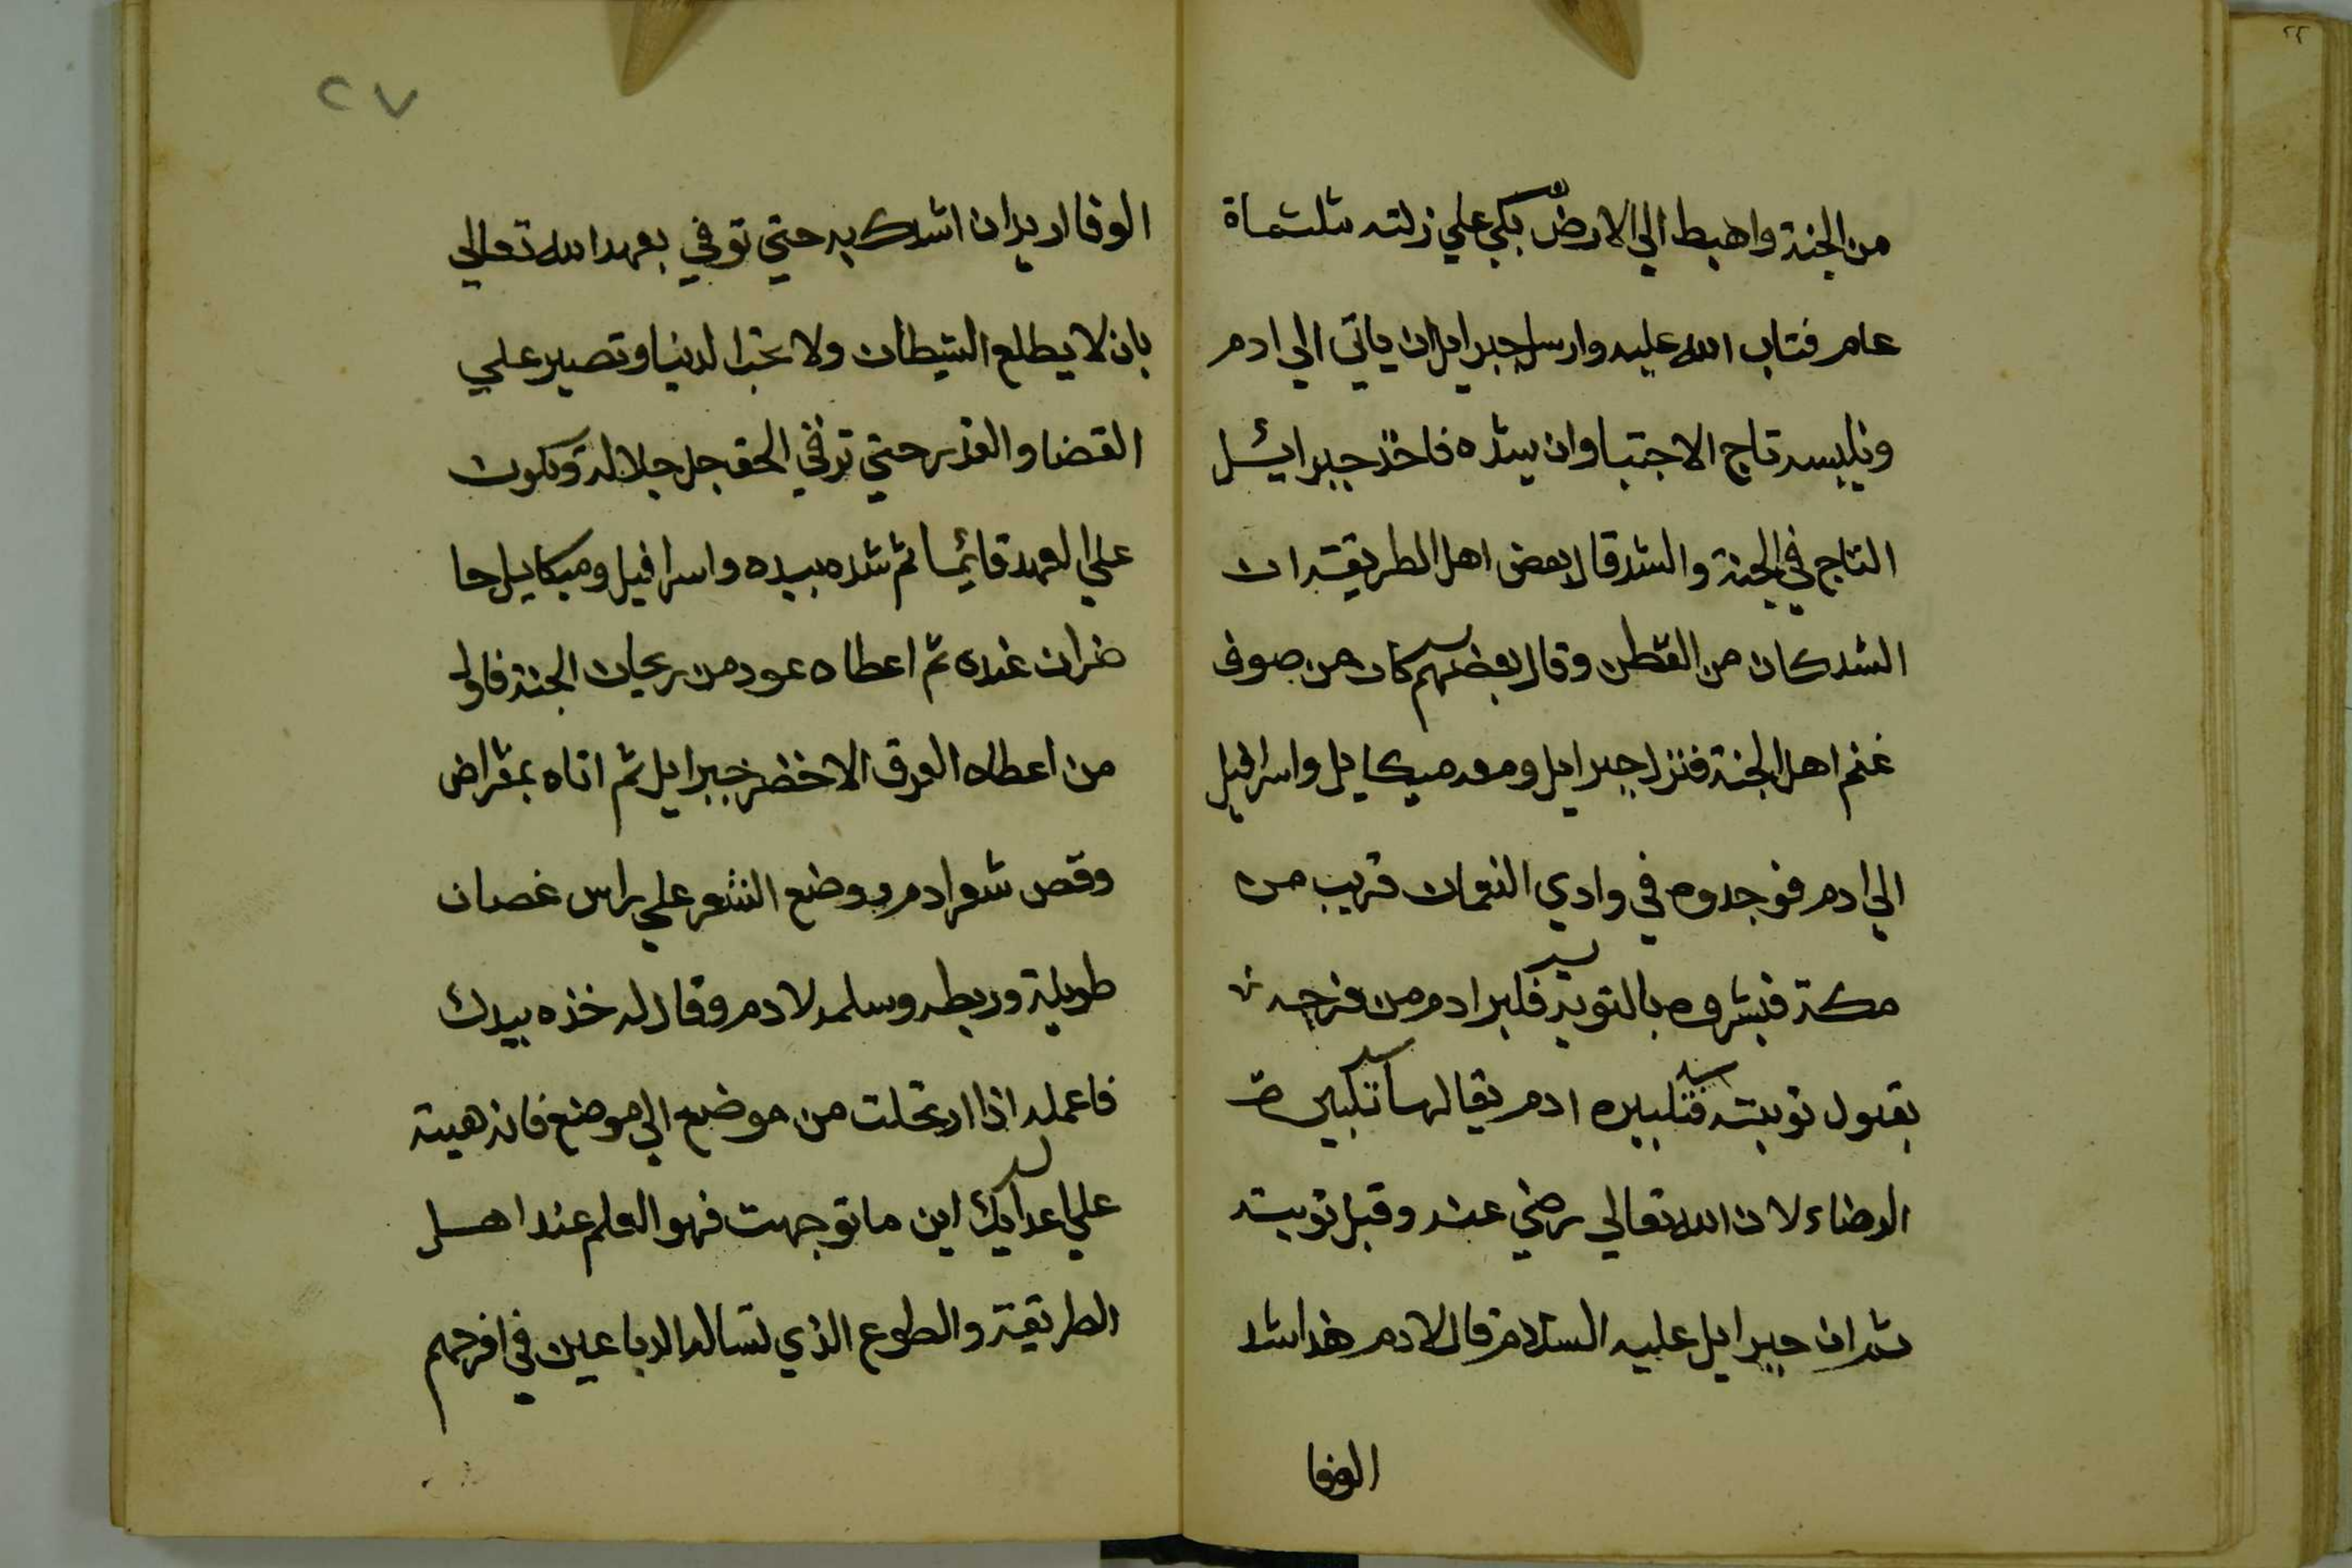 من الجنة واهبط الي الارض بكي علي زلته ثلثماة
عام فتاب الله عليه وارسل جبرايل ان ياتي الي ادم
ويلبسه تاج الاجتبا وان يشده فاخذ جبرائيل
التاج في الجنة والشد قال بعض اهل الطريقة ان
الشد كان من القطن وقال بعضهم كان من صوف
غنم اهل الجنة فنزل جبرايل ومعه ميكايل واسرافيل
الي ادم فوجدوه في وادي النعمان قريب من
مكة فبشروه بالتوبة فكبر ادم من فرحه
بقبول توبته فتكبيره ادم يقال لها تكبيرة
الرضاء لان الله تعالي رضي عنه وقبل توبته
ثم ان جبرايل عليه السلام قال لادم هذا شد
الوفا
٢٧
الوفا اريد ان اشدك به حتي توفي بعهد الله تعالي
بان لا يطلع الشيطان ولا تحب الدنيا وتصبر علي
القضا والقدر حتي توفي الحق جل جلاله وتكون
علي العهد قائما ثم شده بيده واسرافيل وميكايل حا
ضران عنده ثم اعطاه عود من ريحان الجنة فاول
من اعطاه العرق الاخضر جبرايل ثم اتاه بمقراض
وقص شعر ادم ووضع الشعر علي راس غصان
طويلة وربطه وسلمه لادم وقال له خذه بيدك
فاعمله اذا ارتحلت من موضع الي موضع فانه هيبة
علي اعدايك اين ما توجهت فهو العلم عند اهل
الطريقة والطوع الذي تساله الدباعين في افرحهم